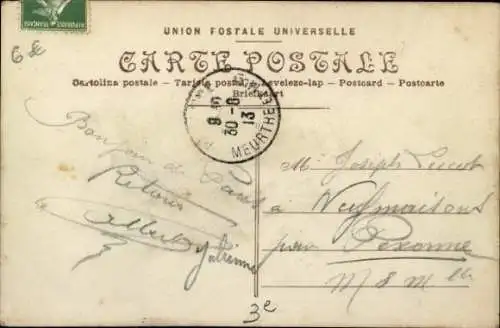 6 €
UNION POSTALE UNIVERSELLE
CARTE POSTALE
Cartolina postale - Tarjeta postal - Levelezo-lap - Postcard - Postcarte
Briefkaart
9
30-8
13
MEURTHE
Bonjour de
Retour
Albert
Julienne
M. Joseph
à Neufmaisons
par Pexonne
M & Mlle
3e